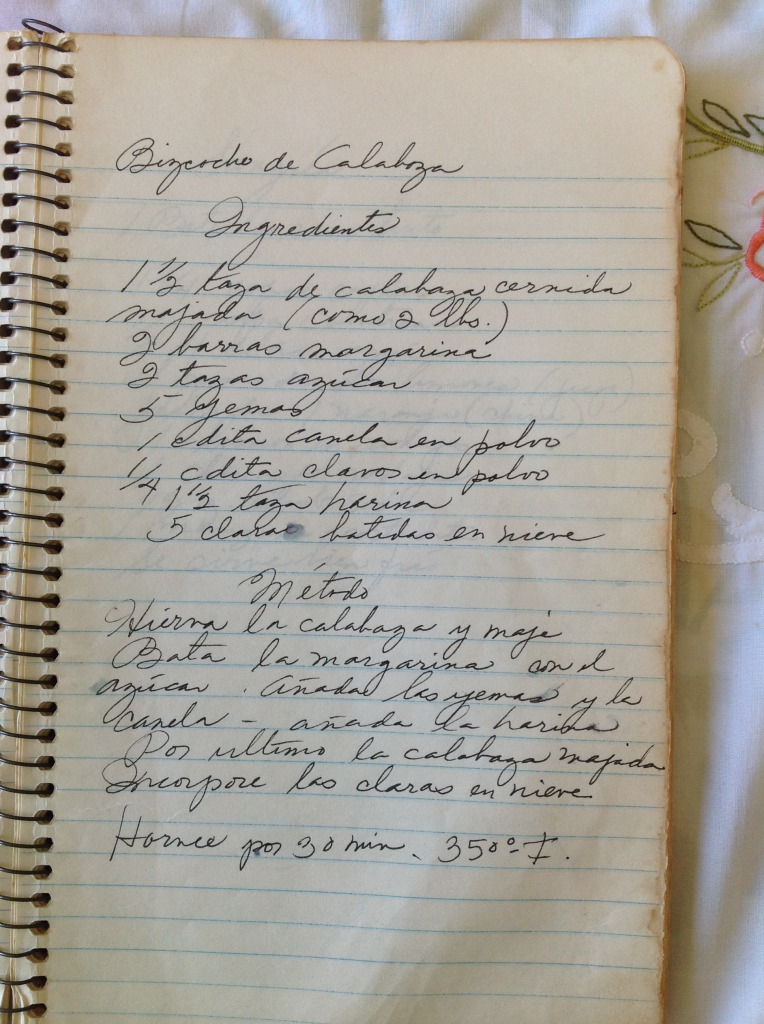 Bizcocho de Calabaza
Ingredientes
1 1/2 taza de calabaza cernida
majada (como 2 lbs.)
2 barras margarina
2 tazas azúcar
5 yemas
1 cdita canela en polvo
1/4 cdita clavos en polvo
1 1/2 taza harina
5 claras batidas en nieve
Método
Hierva la calabaza y maje
Bata la margarina con el
azúcar. Añada las yemas y la
canela - añada la harina
Por ultimo la calabaza majada
Incorpore las claras en nieve
Hornee por 30 min. 350°-F.